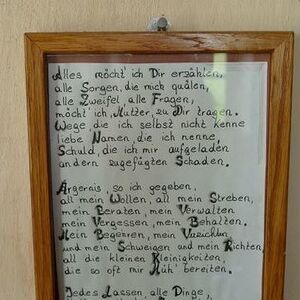 Alles möcht' ich Dir erzählen,
alle Sorgen, die mich quälen,
alle Zweifel, alle Fragen,
möcht' ich, Mutter, zu Dir tragen.
Wege, die ich selbst nicht kenne
liebe Namen, die ich nenne,
Schuld, die ich mir aufgeladen
andern zugefügten Schaden.
Ärgernis, so ich gegeben,
all mein Wollen, all mein Streben,
mein Beraten, mein Verwalten
mein Vergessen, mein Behalten.
Mein Begehren, mein Verzichten
und mein Schweigen und mein Richten,
all die kleinen Kleinigkeiten,
die so oft mir Müh' bereiten.
Jedes Lassen, alle Dinge,